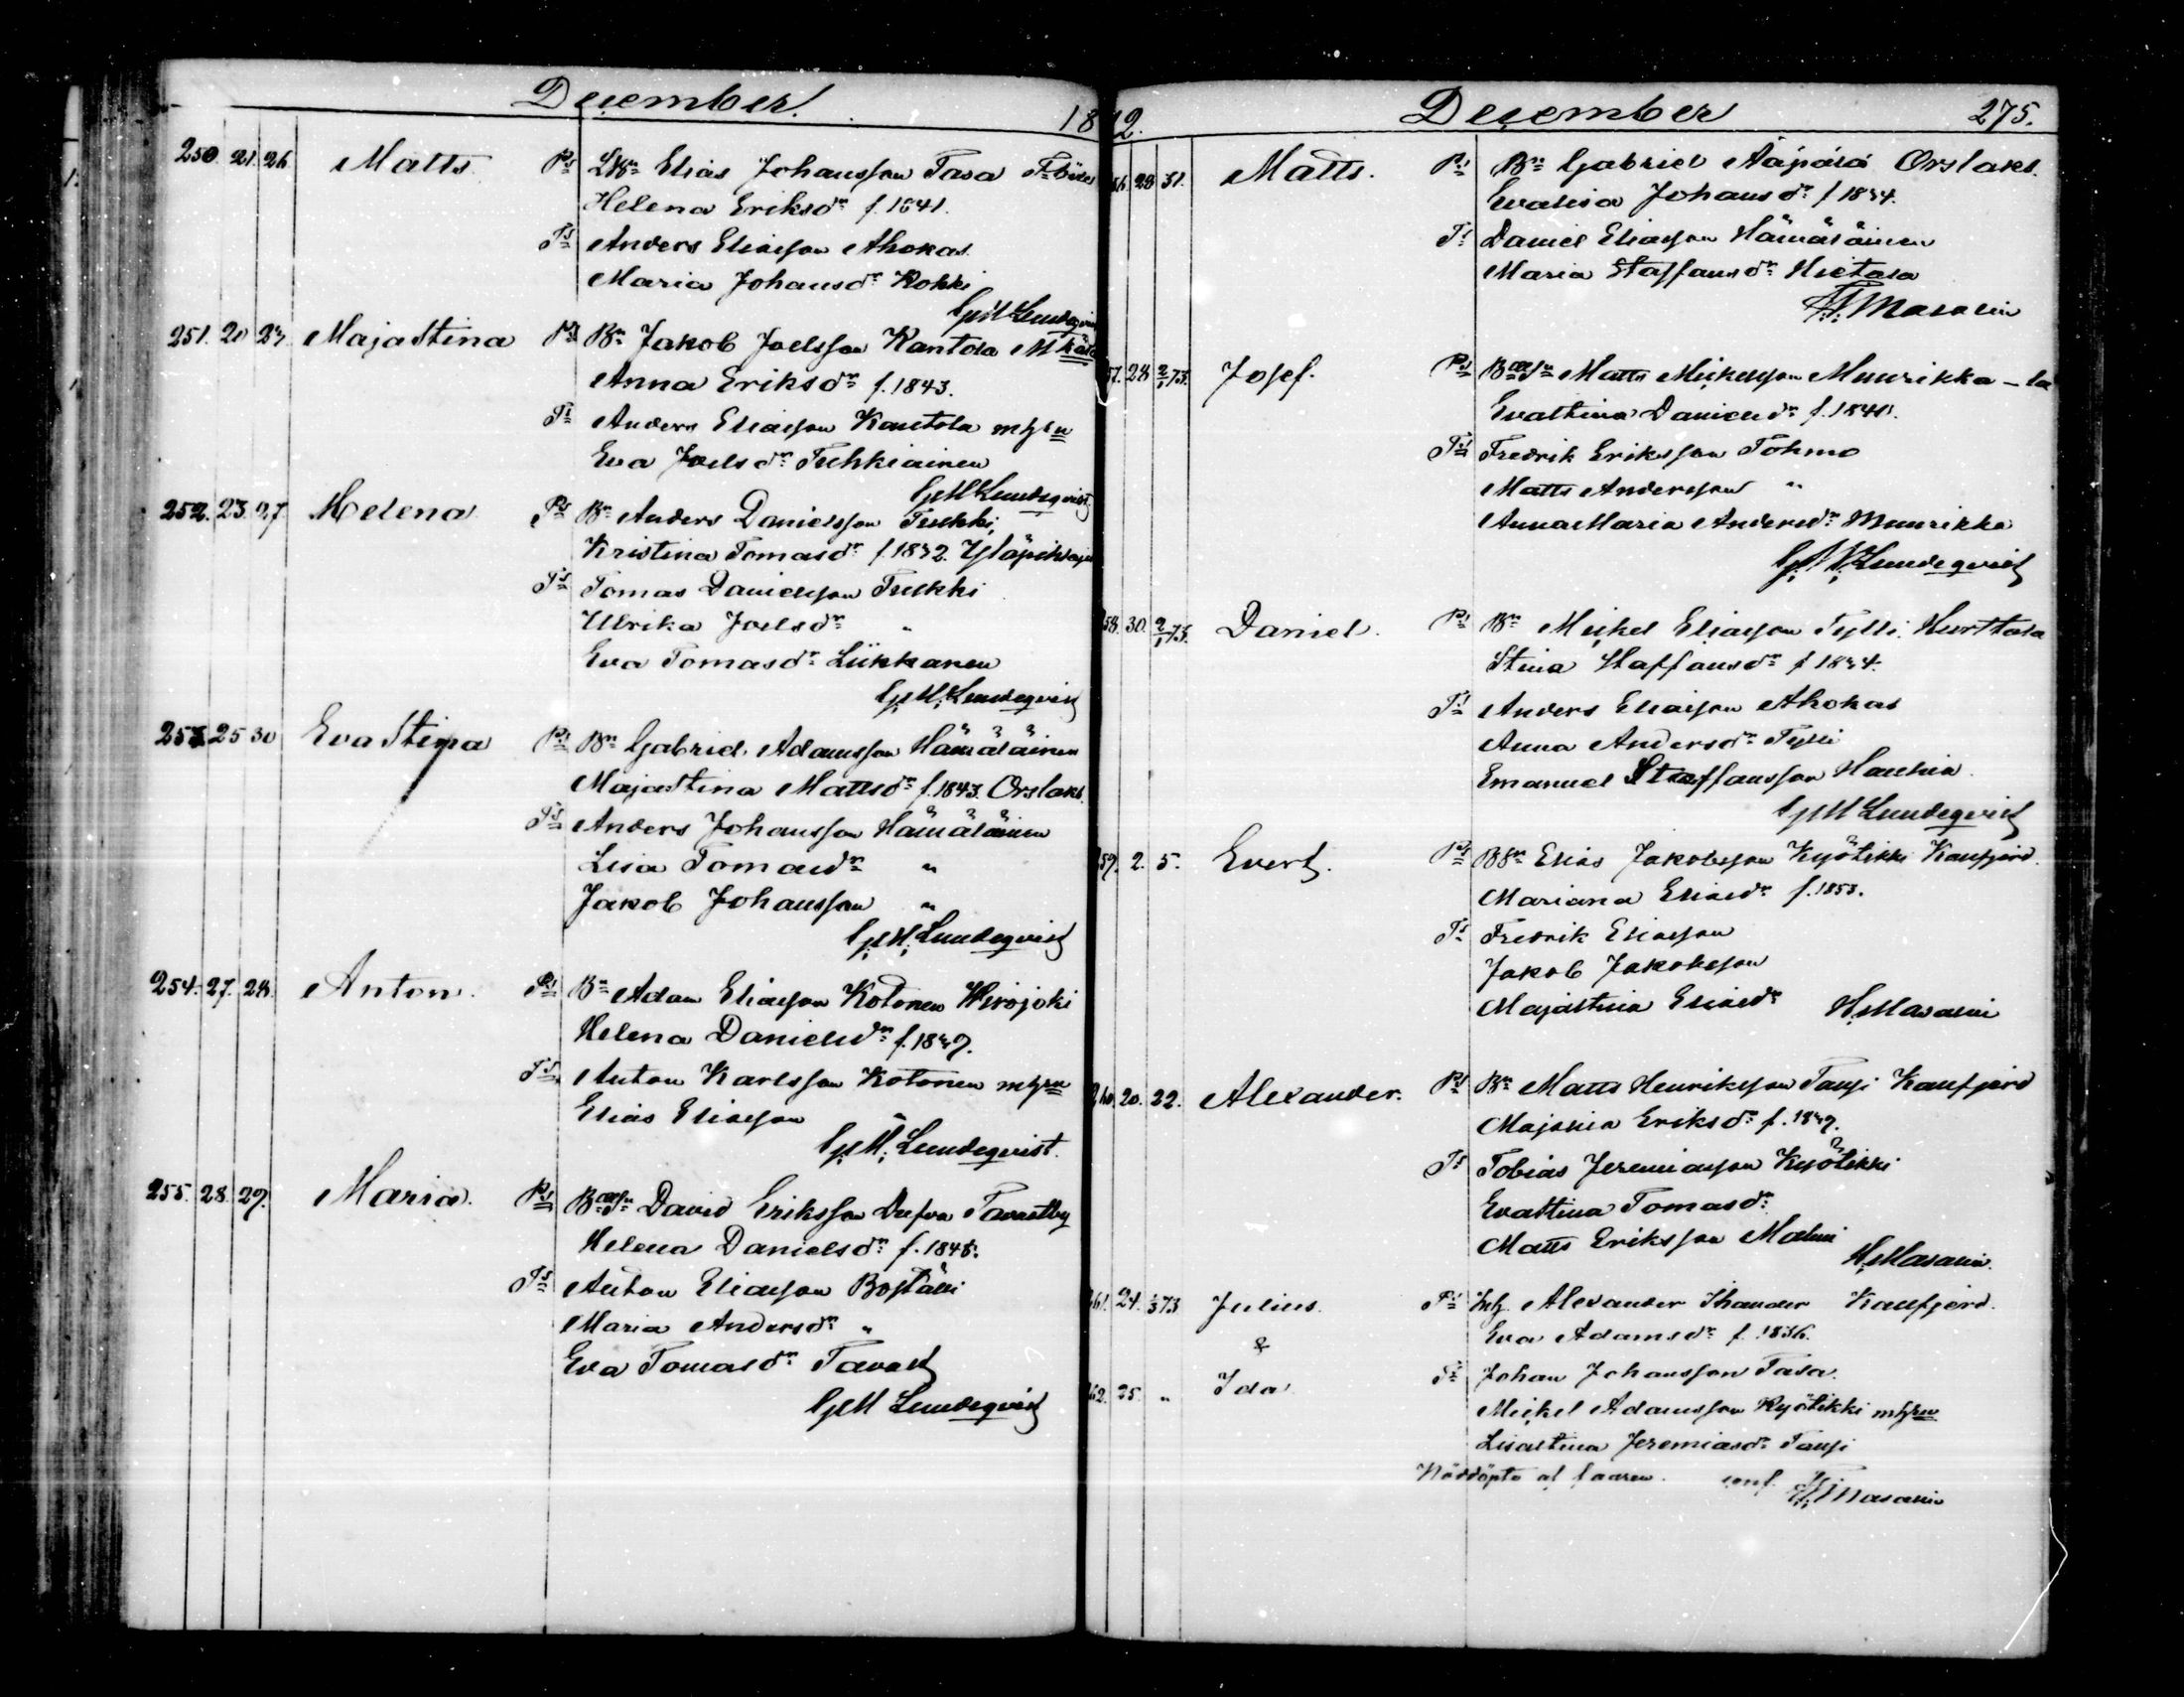 December. 18
250. 21. 26. Matts. P:s LBn Elias Johansson Tasa
Helena Eriksdr f. 1841.
T:s Anders Eliasson Ahokas.
Maria Johansdr Kokki
G. M. Lundeqvist
251. 21 27. Maja Stina P:s Bn Jakob Joelsson Kantola
Anna Eriksdr f. 1843.
T:s Anders Eliasson Kantola m hru
Eva Joelsdr Tuhkiainen
G. M. Lundeqvist
252. 23. 27. Helena P:s Bn Anders Danielsson Tulkki,
Kristina Tomasdr f. 1832.
T:s Tomas Danielsson Tulkki
Ulrika Joelsdr "
Eva Tomasdr Liikkanen
G. M. Lundeqvist
253. 25 30 Eva Stina P:s Bn Gabriel Adamsson Hämäläinen
Maja Stina Mattsdr f. 1843. Orslaks.
T:s Anders Johansson Hämäläinen
Lisa Tomasdr "
Jakob Johansson "
G. M. Lundeqvist
254. 27. 28. Anton. P:s Bn Adam Eliasson Kotonen Wirojoki
Helena Danielsdr
T:s Anton Karlsson Kotonen m hru
Elias Eliasson "
G. M. Lundeqvist.
255. 28. 29. Maria. P:s David Eriksson Tavastby
Helena Danielsdr f. 1848.
T:s Anton Eliasson
Maria Andersdr "
Eva Tomasdr Tavast
G. M. Lundeqvist
72. December 275.
56. 28 31. Matts. P:s Bn Gabriel Ääpälä Orslaks.
Evalisa Johansdr f. 1834.
T:s Daniel Eliasson Hämäläinen
Maria Staffansdr Hietala
H. Masalin
57. 28 2/1 73. Josef. P:s Matts Mickelsson Muurikka - la
Evastina Danielsdr
T:s Fredrik Eriksson Tohmo
Matts Andersson "
Anna Maria Andersdr Muurikka
G. M. Lundeqvist
258. 30. 2/1 73. Daniel. P:s Bn Mickel Eliasson Tylli. Hurttala
Stina Staffansdr f. 1834.
T:s Anders Eliasson Ahokas
Anna Andersdr Tylli
Emanuel Staffansson Hauhia.
G M Lundeqvist
259. 2. 5. Evert. P:s Elias Jakobsson Kyötikki Kaufjerd.
Mariana Eliasdr f. 1853.
T:s Fredrik Eliasson
Jakob Jakobsson
Majastina Eliasdr H. Masalin
260. 20. 22. Alexander. P:s Bn Matts Henriksson Kaufjerd
Eriksdr
T:s Tobias Jeremiasson Kyötikki
Evastina Tomasdr
Matts Eriksson
H. Masalin.
261. 24. 1/3 73 Julius. P:s Inh. Alexander Kaufjerd.
Eva Adamsdr f. 1836.
&
T:s Johan Johansson Tasa.
262. 25 " Ida.
Mickel Adamsson Kyötikki m hru
Lisastina Jeremiasdr
Nöddöpta af faaren. H. Masalin